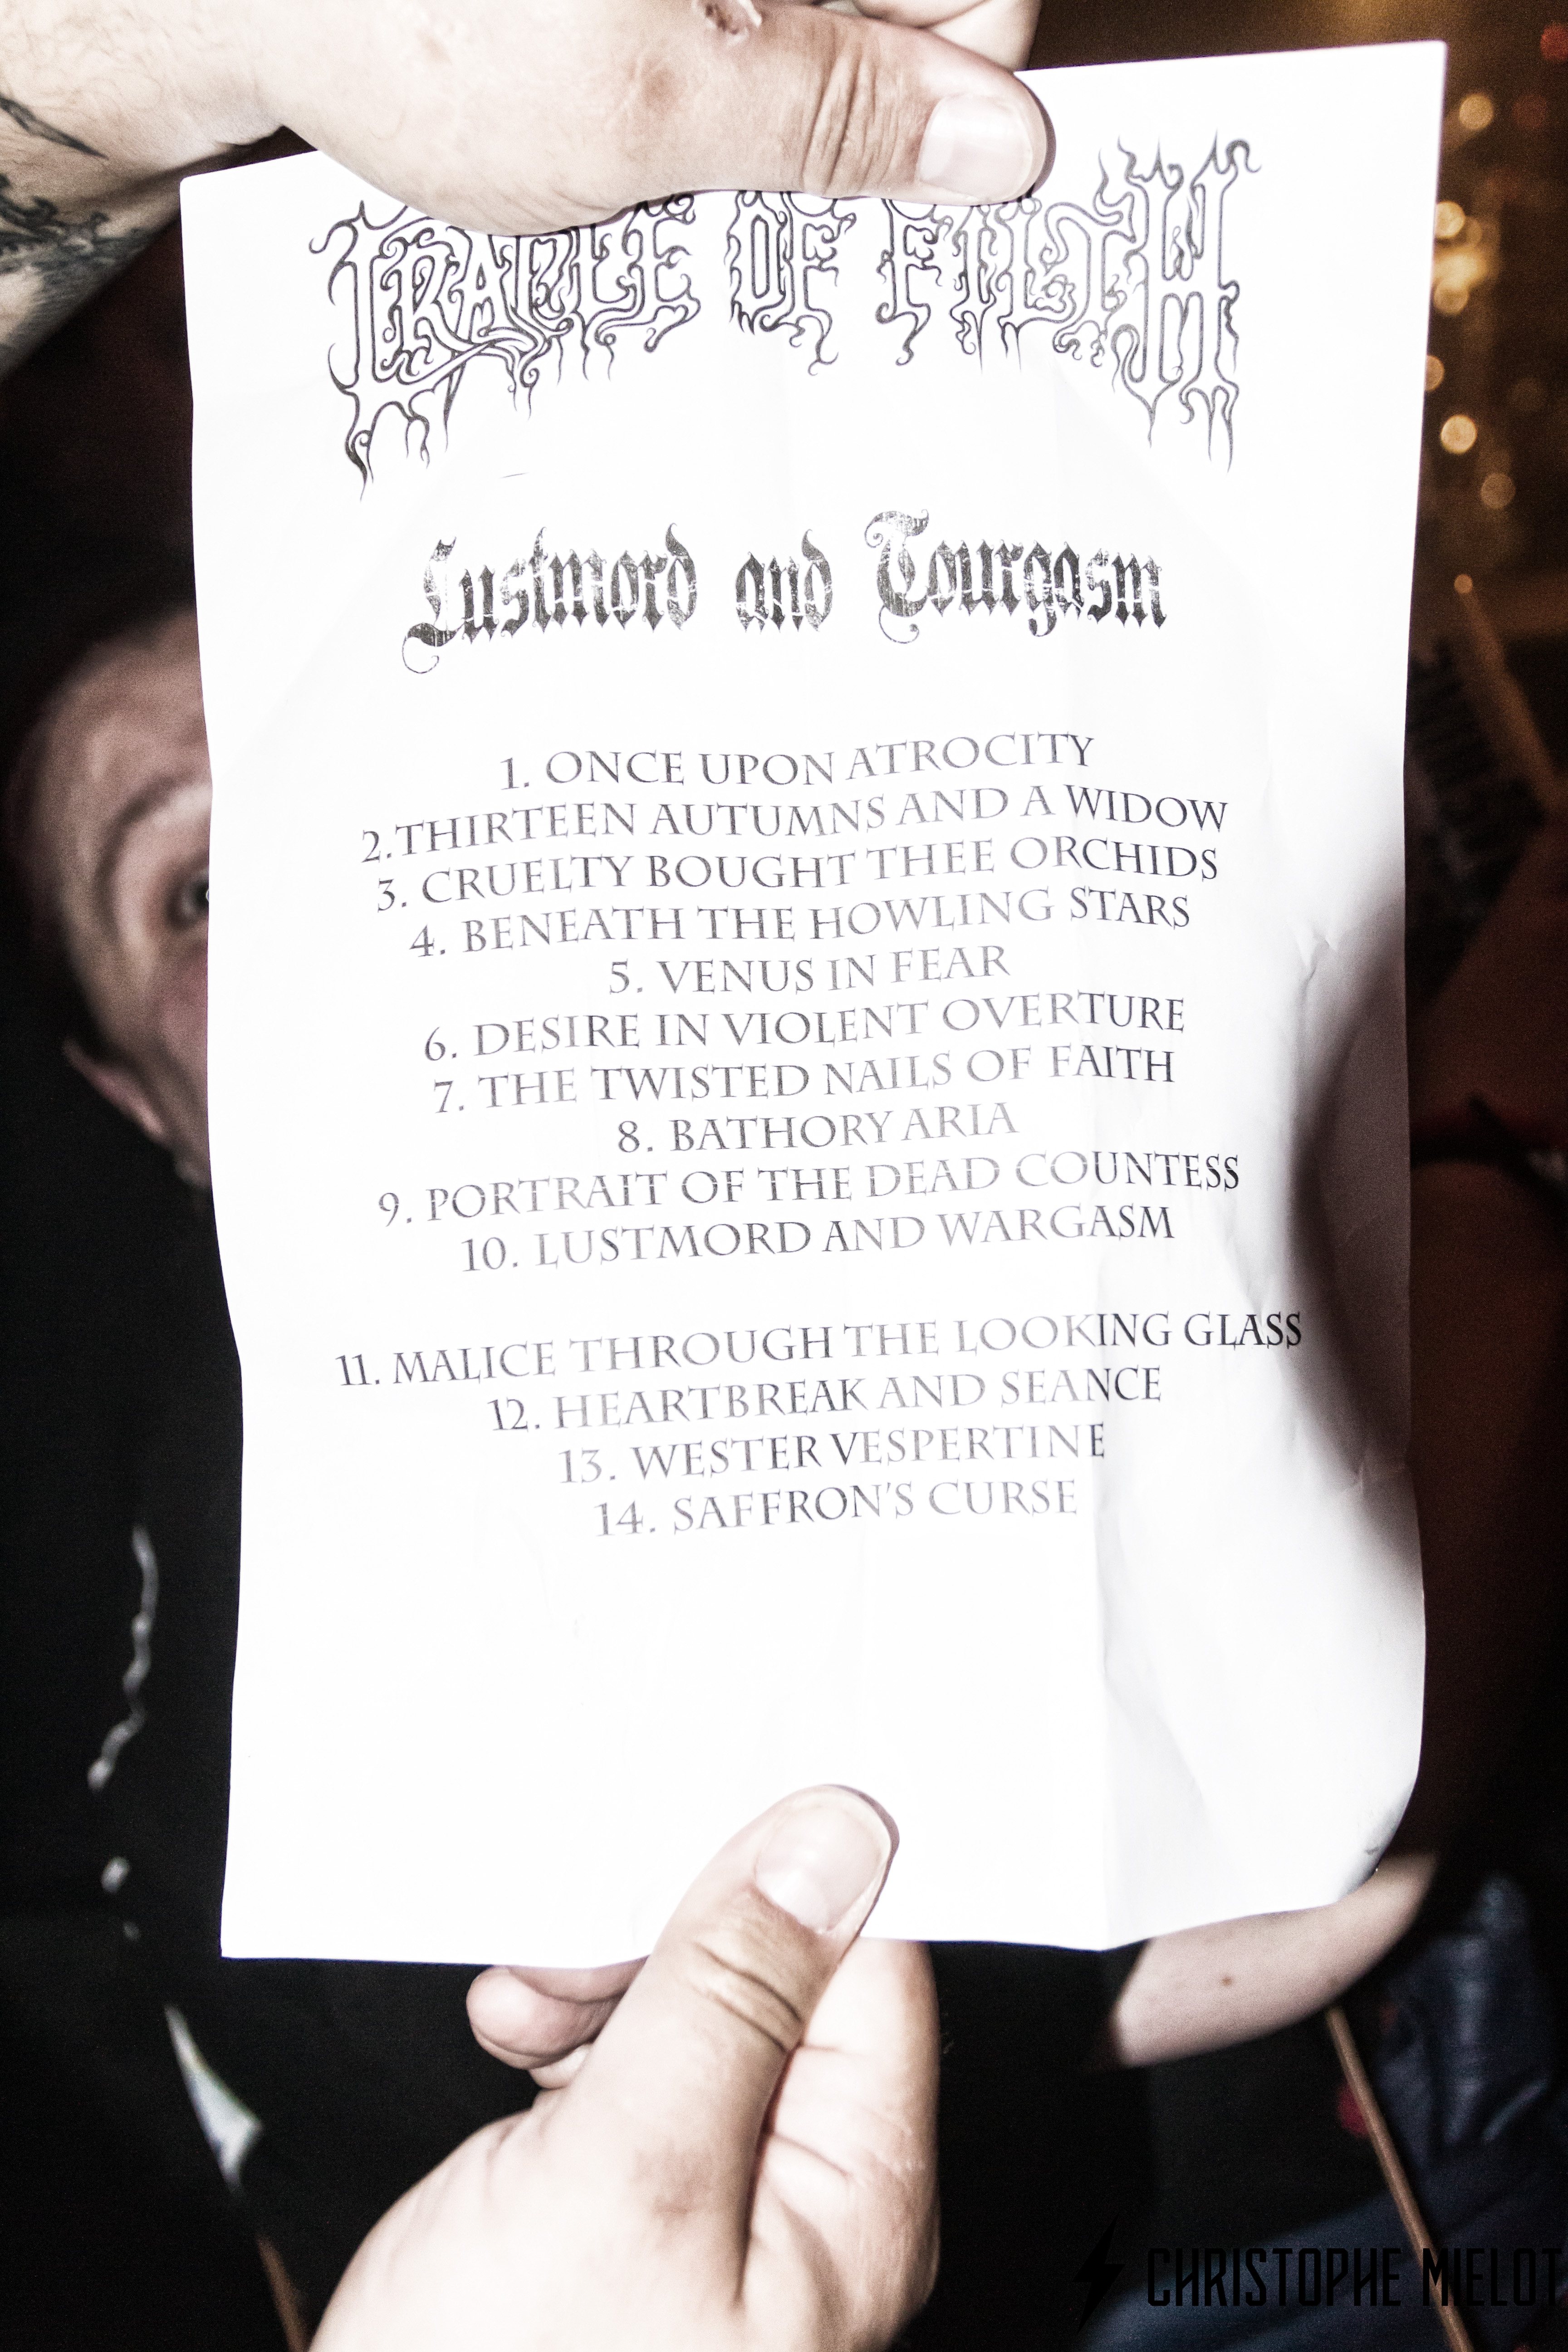 CRADLE OF FILTH
Lustmord and Tourgasm
1. ONCE UPON ATROCITY
2.THIRTEEN AUTUMNS AND A WIDOW
3. CRUELTY BOUGHT THEE ORCHIDS
4. BENEATH THE HOWLING STARS
5. VENUS IN FEAR
6. DESIRE IN VIOLENT OVERTURE
7. THE TWISTED NAILS OF FAITH
8. BATHORY ARIA
9. PORTRAIT OF THE DEAD COUNTESS
10. LUSTMORD AND WARGASM
11. MALICE THROUGH THE LOOKING GLASS
12. HEARTBREAK AND SEANCE
13. WESTER VESPERTINE
14. SAFFRON'S CURSE
CHRISTOPHE MIELOT